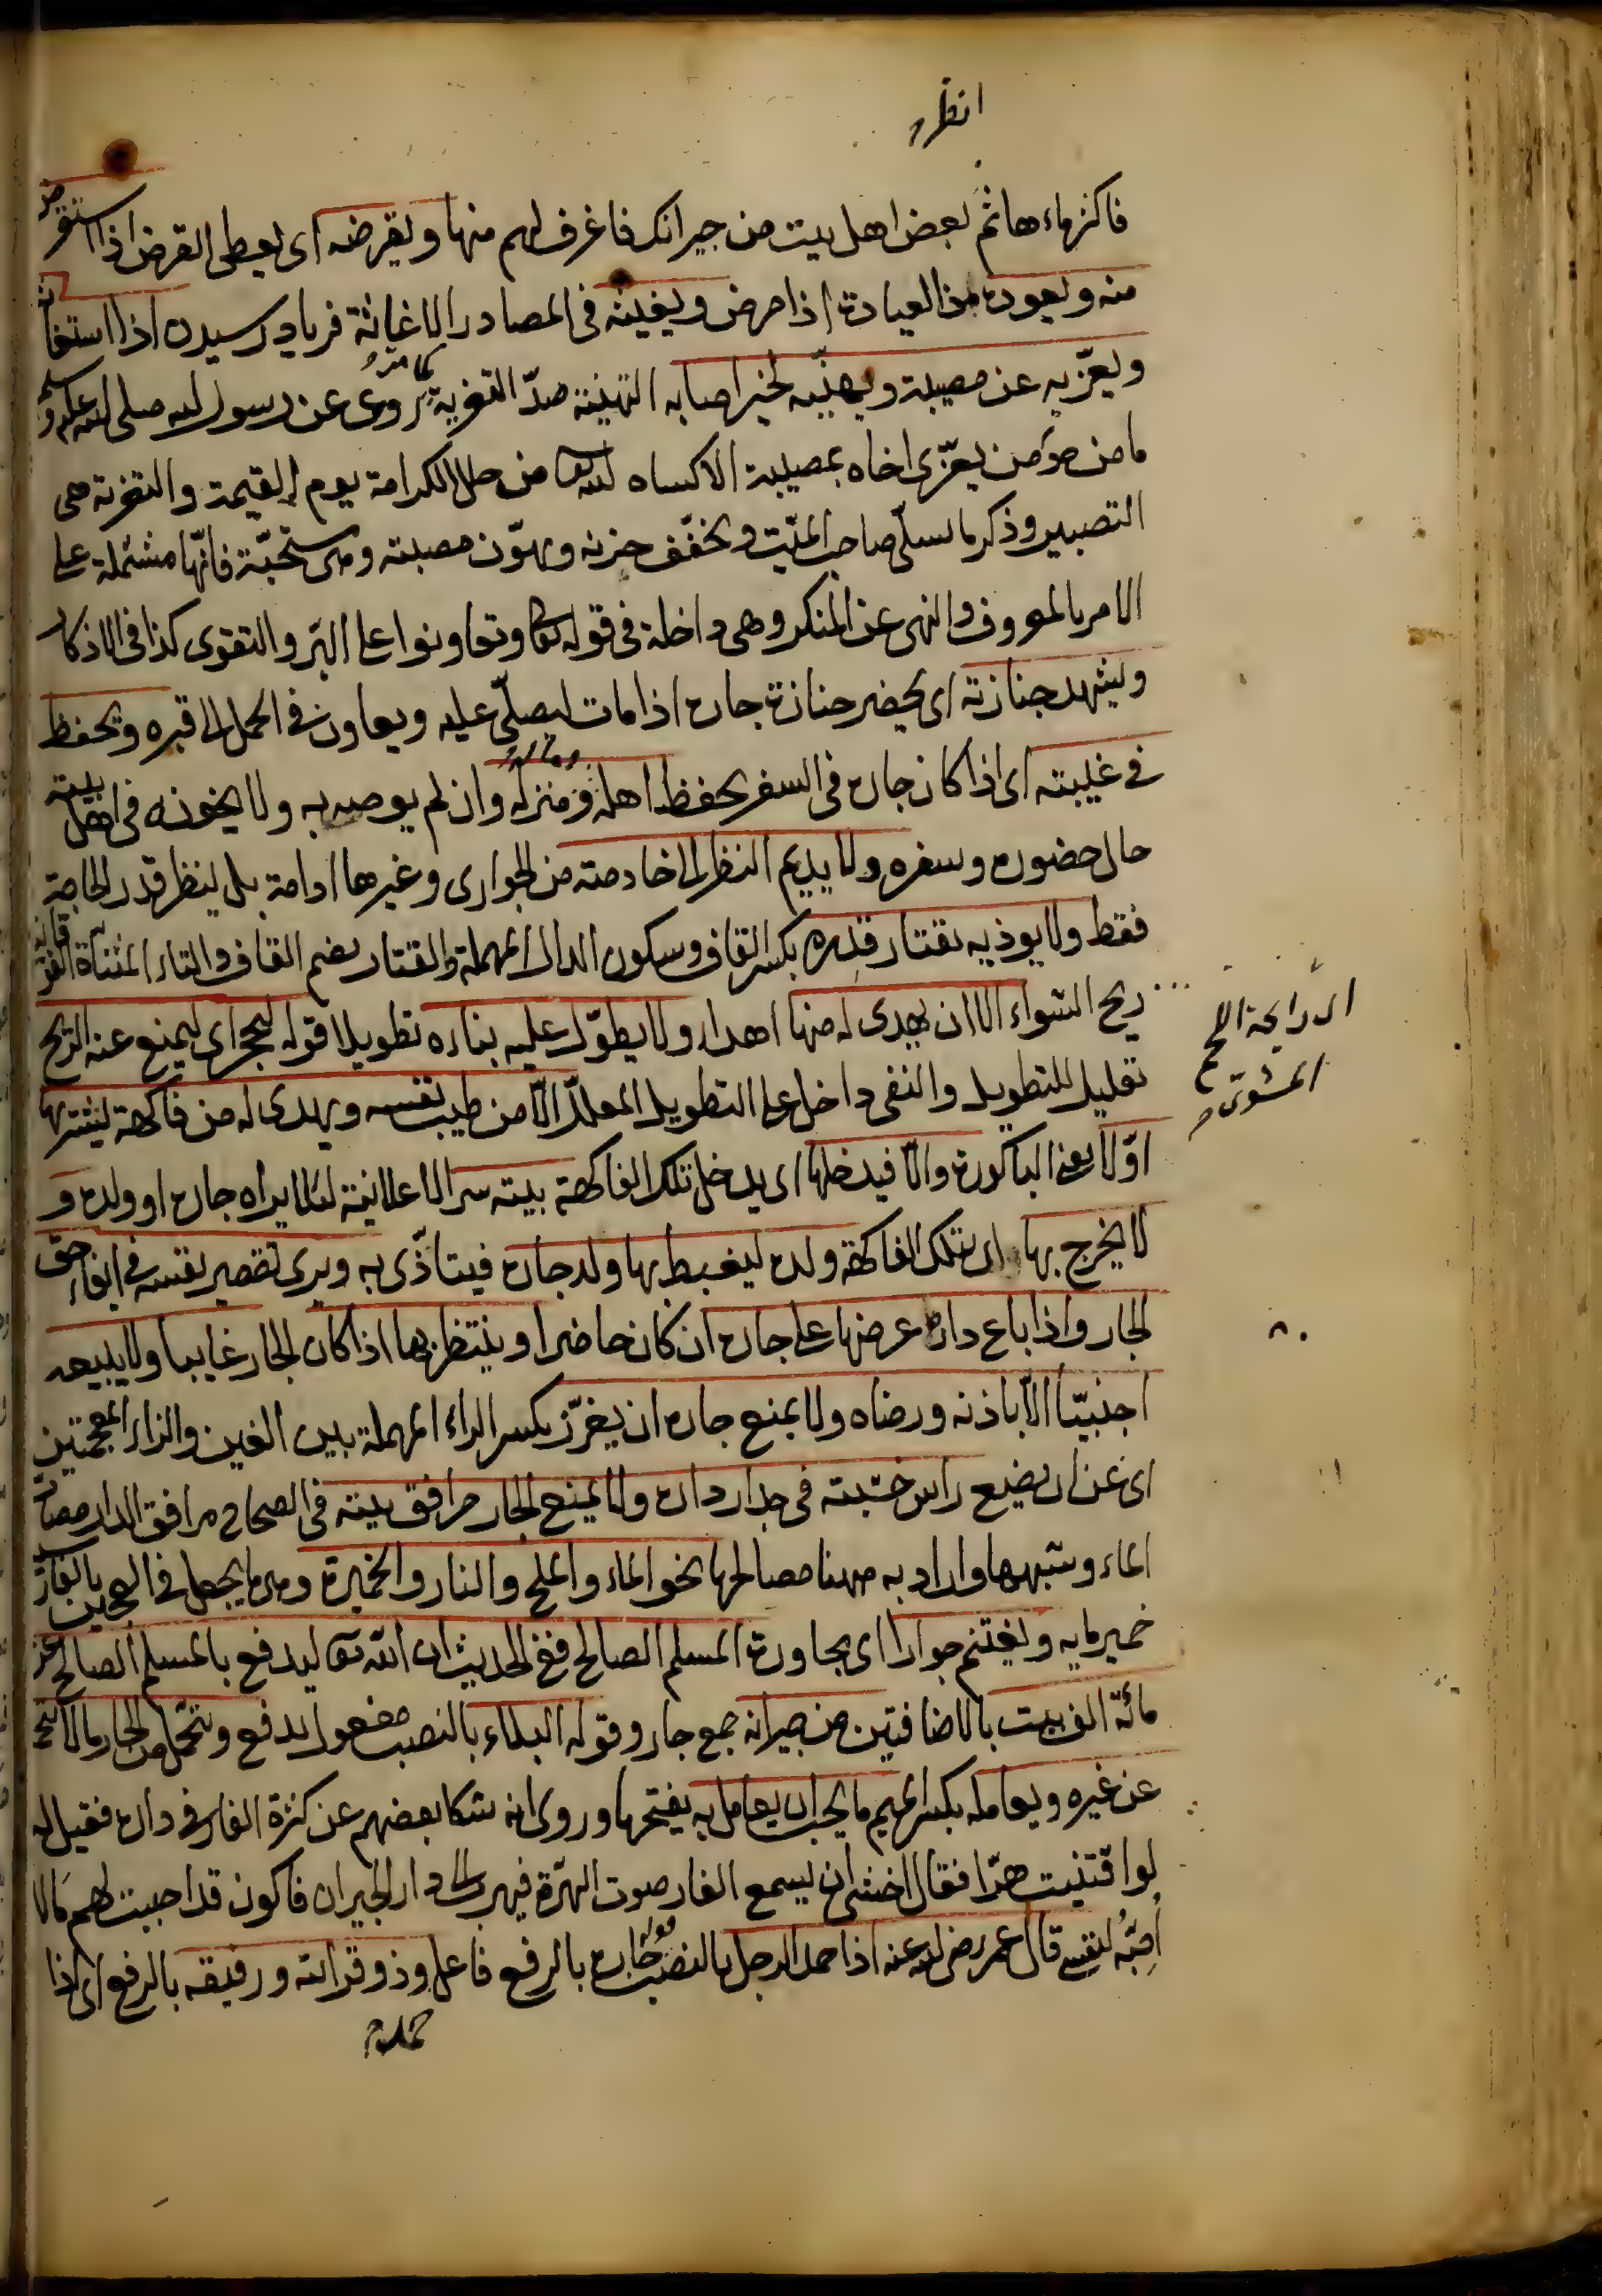 انظر
فاكثر ماءها ثم لبعض اهل بيت من جيرانك فاغرف لهم منها ويقرضه اى يعطى القرض اذا استقرض
منه ويعوده من العيادة اذا مرض ويغيثه فى المصادر الاغاثة فرياد رسيدن اذا استغاثه
ويعزّيه عن مصيبة ويهنّيه لخير اصابه التهنية ضدّ التعزية كما مرّ روى عن رسول الله صلى الله عليه وسلم
ما من مؤمن يعزّى اخاه بمصيبة الا كساه الله تعا من حلل الكرامة يوم القيمة والتعزية هى
التصبير وذكر ما يسلّى صاحب الميّت ويخفّف حزنه ويهوّن مصيبته وهى مستحبّة فانّها مشتملة على
الامر بالمعروف والنهى عن المنكر وهى داخلة فى قوله تعا وتعاونوا على البرّ والتقوى كذا فى الاذكار
ويشهد جنازته اى يحضر جنازة جاره اذا مات ليصلّى عليه ويعاون فى الحمل الى قبره ويحفظه
فى غيبته اى اذا كان جاره فى السفر يحفظ اهله وماله ومنزله وان لم يوصه به ولا يخونه فى اهل بيته
حال حضوره وسفره ولا يديم النظر الى خادمته من الجوارى وغيرها ادامة بل ينظر قدر الحاجة
فقط ولا يوذيه بقتار قدره بكسر القاف وسكون الدال المهملة والقتار بضم القاف والتاء المثناة الفوقانية
ريح الشواء الا ان يهدى له منها اهداء ولا يطوّل عليه بناءه تطويلا قوله ليحجر اى ليمنع عنه الريح
تعليل للتطويل والنفى داخل على التطويل المعلّل الّا من طيب نفسه ويهدى له من فاكهة ليشتريها
اوّلا يعنى الباكورة والّا فيدخلها اى يدخل تلك الفاكهة بيته سرا لا علانية لئلا يراه جاره او ولده و
لا يخرج بها اى بتلك الفاكهة ولده ليغبط بها ولد جاره فيتاذّى به ويرى تقصير نفسه فى ايفاء حقّ
الجار واذا باع داره عرضها على جاره ان كان حاضرا وينتظر بها اذا كان الجار غايبا ولا يبيعه
اجنبيّا الّا باذنه ورضاه ولا يمنع جاره ان يغرّز بكسر الراء المهملة بين الغين والزاء المعجمتين
اى عن ان يضع راس خشبته فى جدار داره ولا يمنع الجار مرافق بيته فى الصحاح مرافق الدار مصابّ
الماء وشبهها واراد به ههنا مصالحها نحو الماء والملح والنار والخميرة وهى ما يجعل فى العجين بالفارسية
خميرمايه ويغتنم جوار اى مجاورة المسلم الصالح ففى الحديث ان الله تعا ليدفع بالمسلم الصالح عن
مائة الف بيت بالاضافتين من جيرانه جمع جار وقوله البلاء بالنصب مفعول يدفع ويتحمّل من الجار ما لا يتحمل
عن غيره ويعامله بكسر الميم ما يحب ان يعامل به بفتحها وروى انه شكا بعضهم عن كثرة الفار فى داره فقيل له
لو اقتنيت هرّا فقال اخشى ان يسمع الفار صوت الهرّة فيهرب الى دار الجيران فاكون قد احببت لهم ما لا
اُحِبُّه لنفسى قال عمر رضى الله عنه اذا حمد الرجل بالنصب مفعول جاره بالرفع فاعل وذو قرابته ورفيقه بالرفع اى اذا
حمده
اى رايحة اللحم
المشوىّ